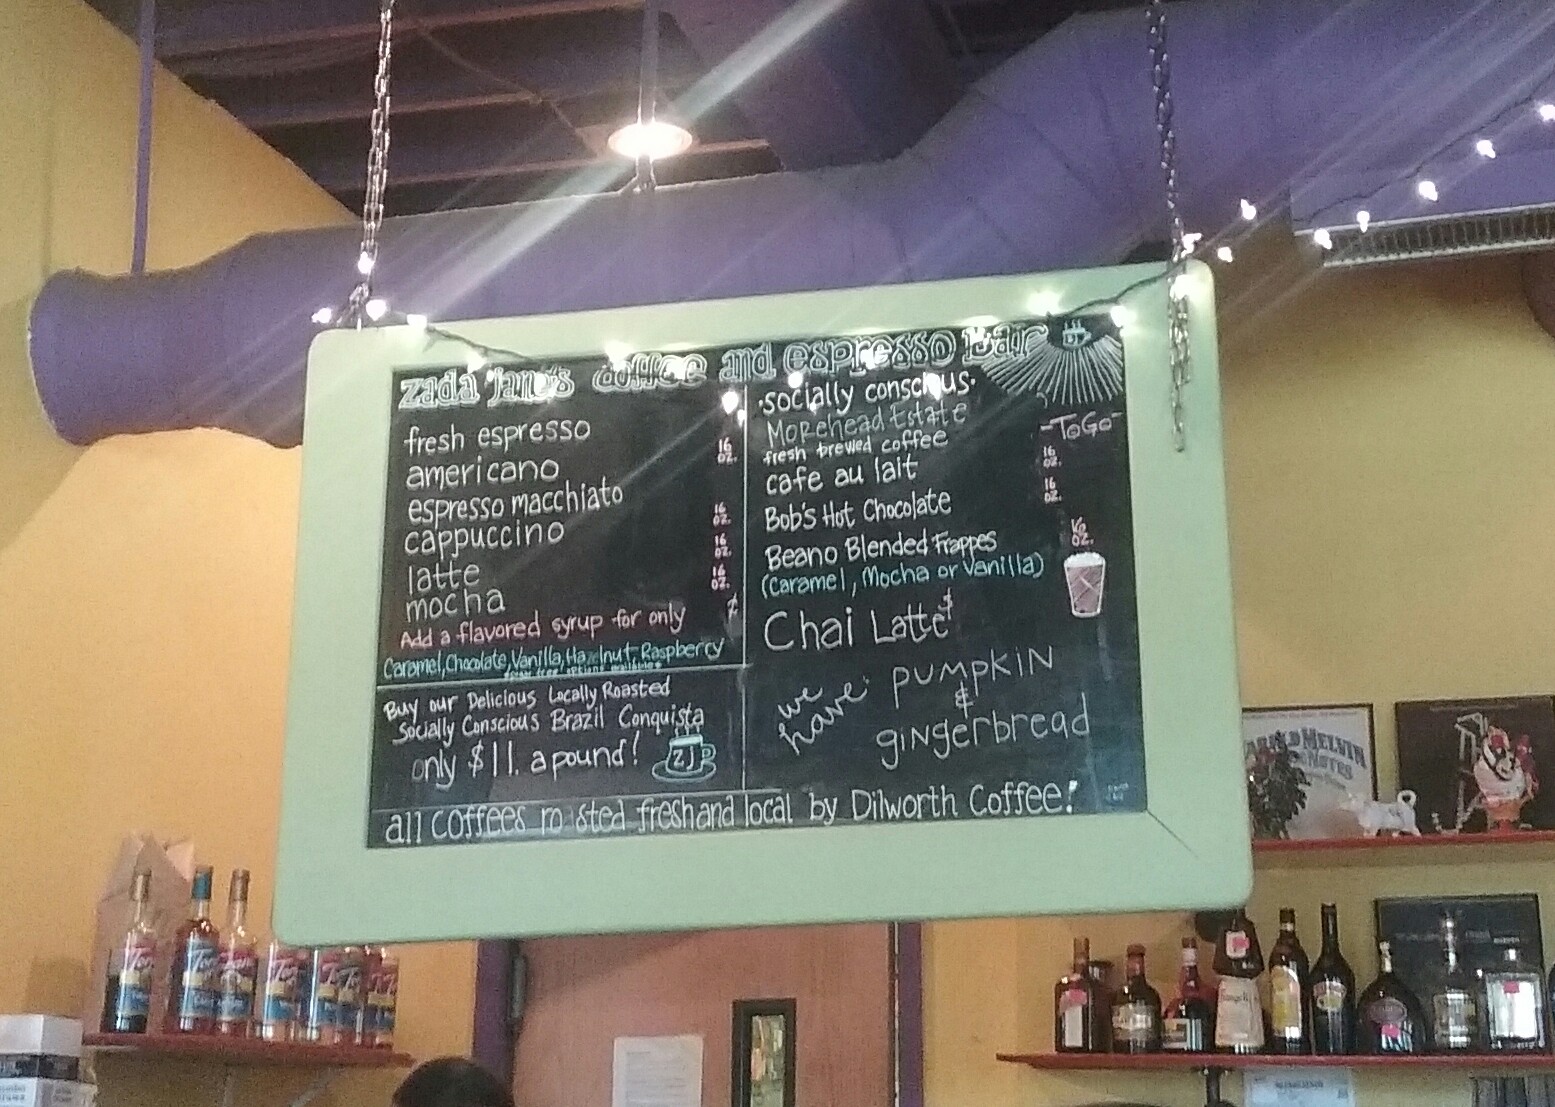 zada jane's coffee and espresso Bar
fresh espresso
americano 16 oz.
espresso macchiato
cappuccino 16 oz.
latte 16 oz.
mocha 16 oz.
Add a flavored syrup for only ¢
Caramel, Chocolate, Vanilla, Hazelnut, Raspberry
Buy our Delicious Locally Roasted
Socially Conscious Brazil Conquista
only $11. a pound!
ZJ
·socially conscious·
Morehead Estate
-ToGo-
fresh brewed coffee 16 oz.
cafe au lait 16 oz.
Bob's Hot Chocolate
Beano Blended Frappes 16 oz.
(Caramel, Mocha or Vanilla)
Chai Latte $
we have:
PUMPKIN
&
gingerbread
all coffees roasted fresh and local by Dilworth Coffee!
HAROLD MELVIN
NOTES